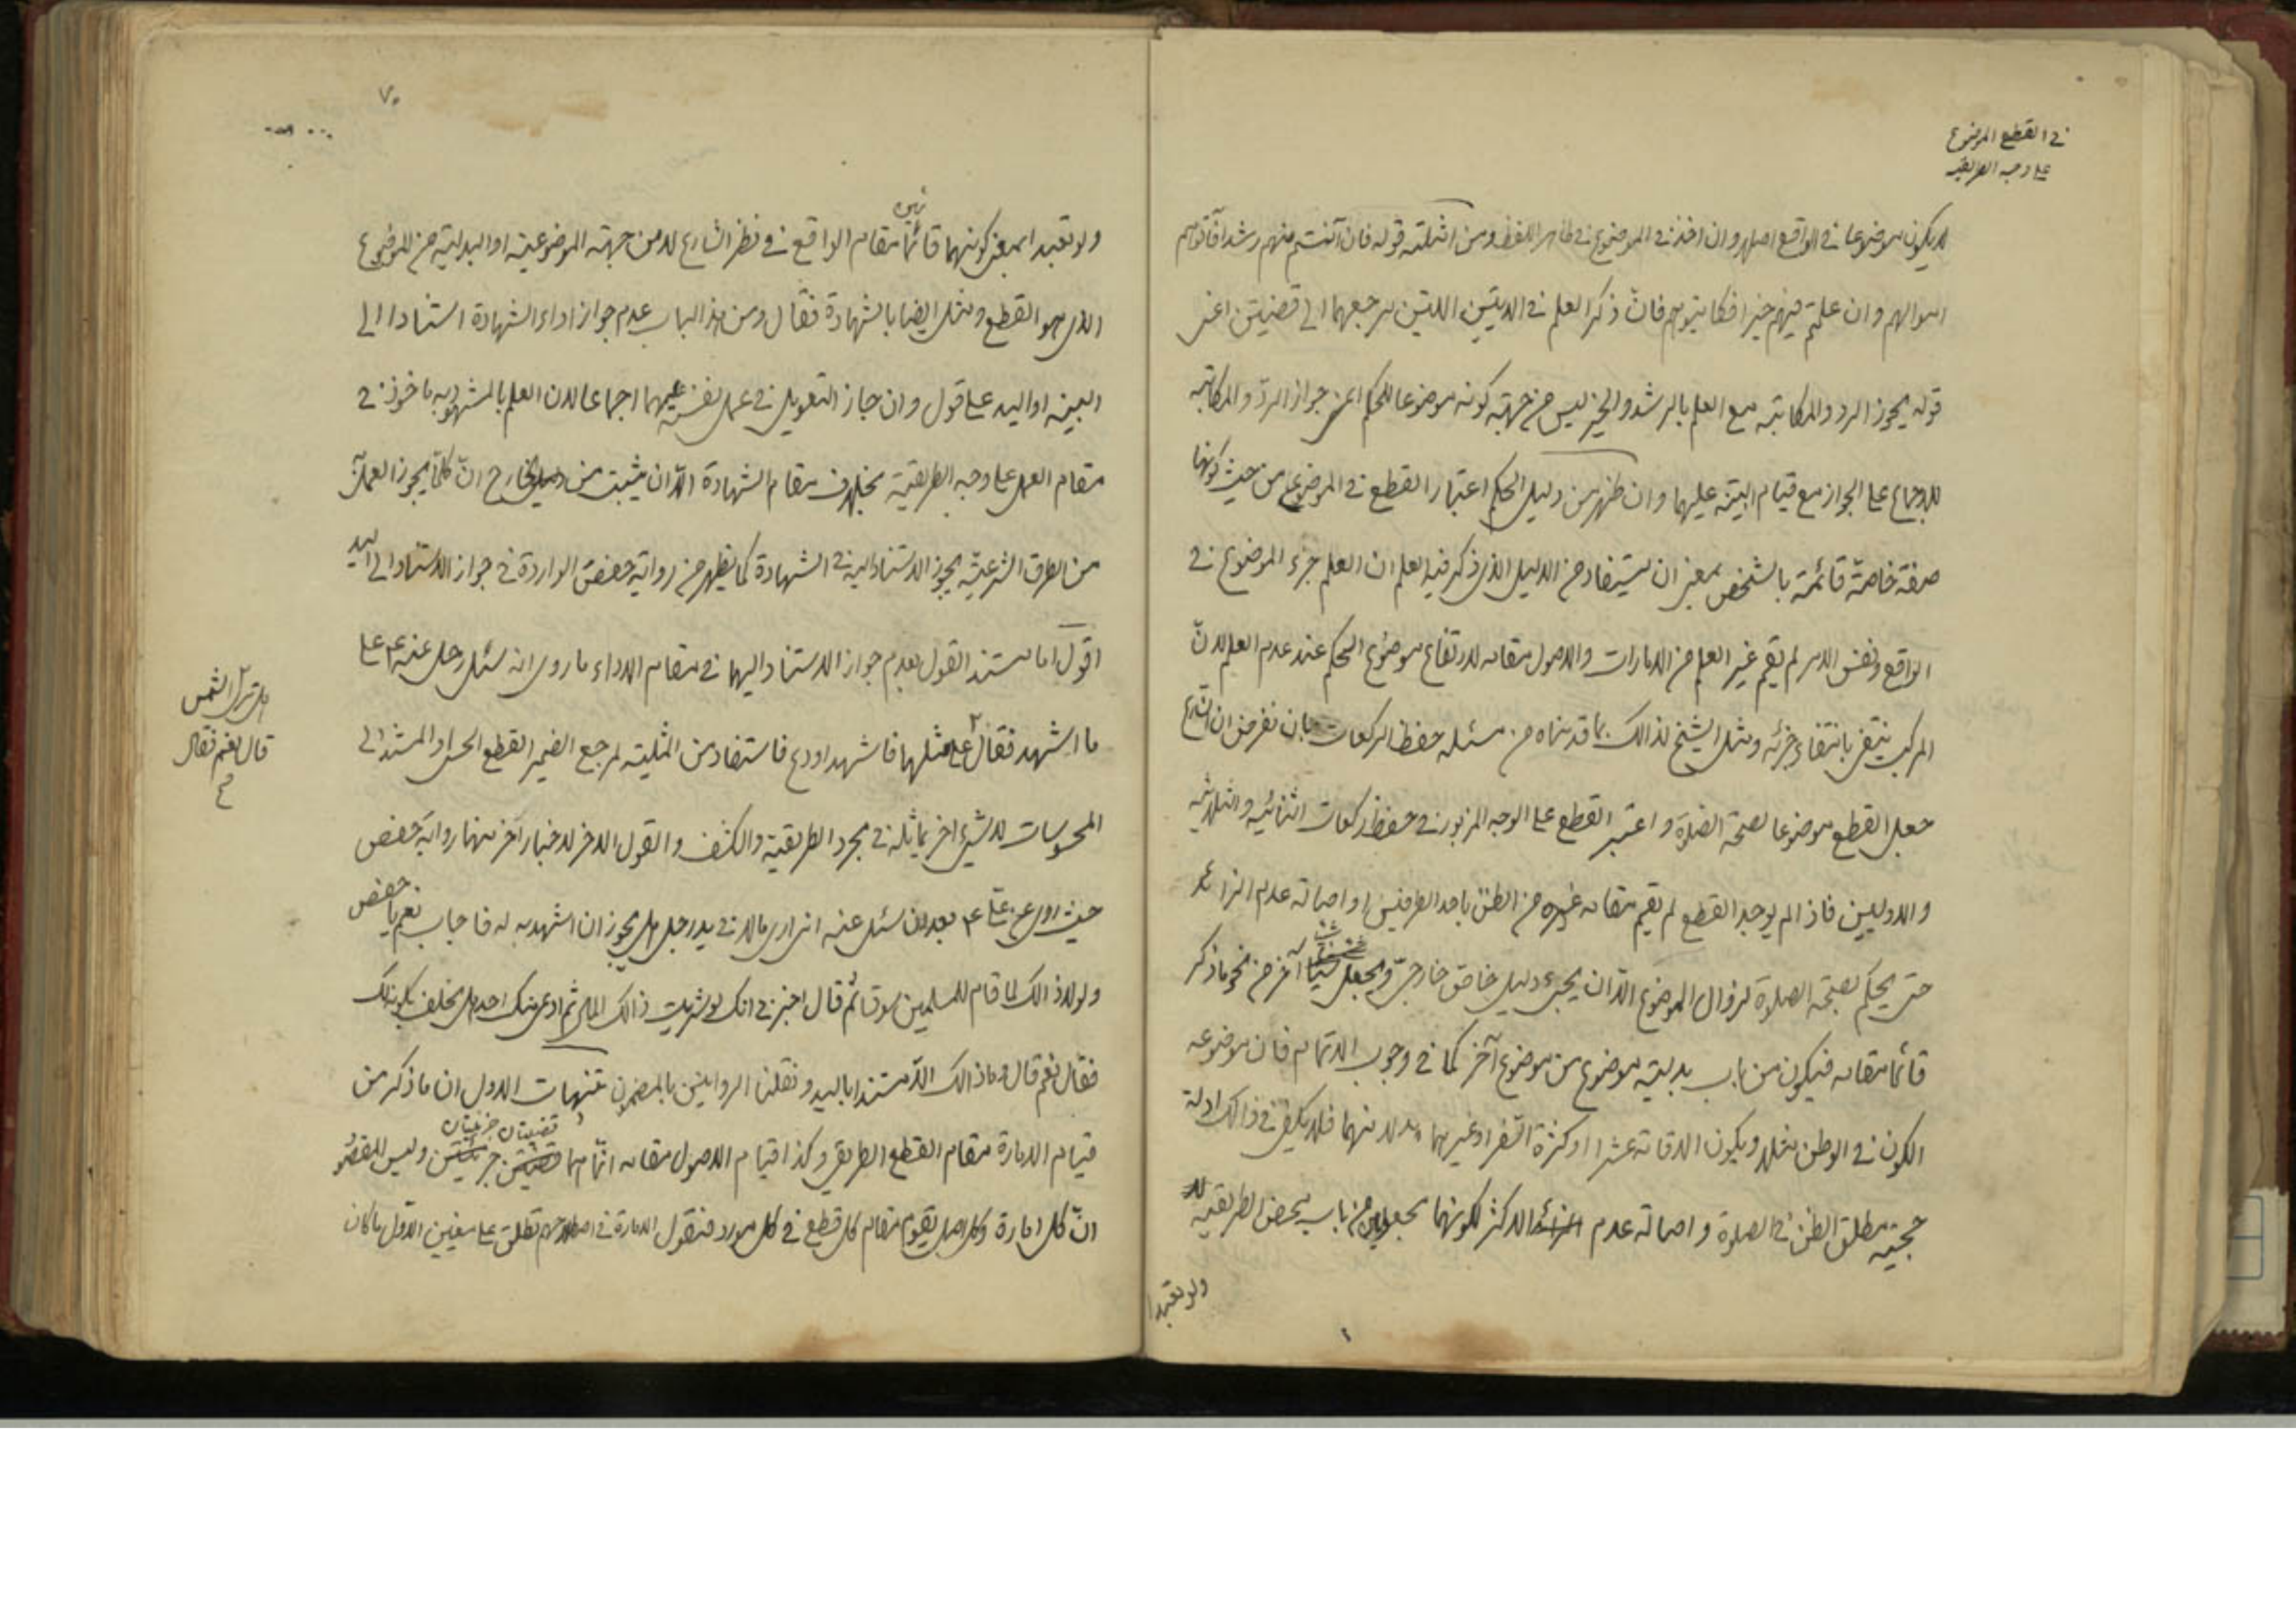 في القطع الموضوع
على وجه الطريقية
لا يكون موضوعا في الواقع اصلا وان اخذ في الموضوع في ظاهر اللفظ ومن امثلته قوله فان آنستم منهم رشدا فآتوهم
اموالهم وان علمتم فيهم خيرا فكاتبوهم فان ذكر العلم في الايتين اللتين مرجعهما الى قضيتين اعنى
قوله يجوز الرد والمكاتبة مع العلم بالرشد والخير ليس من جهة كونه موضوعا للحكم اعنى جواز الردّ والمكاتبة
للاجماع على الجواز مع قيام البيّنة عليهما وان ظهر من دليل الحكم اعتبار القطع في الموضوع من حيث كونها
صفة خاصّة قائمة بالشخص بمعنى ان يستفاد من الدليل الذى ذكر فيه العلم ان العلم جزء الموضوع في
الواقع ونفس الامر لم يقم غير العلم من الامارات والاصول مقامه لارتفاع موضوع الحكم عند عدم العلم لانّ
المركب ينتفى بانتفاء جزئه ومثل الشيخ لذالك بما قدمناه من مسئلة حفظ الركعات بان نفرض ان الشارع
جعل القطع موضوعا لصحّة الصّلاة و اعتبر القطع على الوجه المزبور في حفظ ركعات الثنائيه والثلاثيه
والاوليين فاذا لم يوجد القطع لم يقم مقامه غيره من الظنّ باحد الطرفين او اصالة عدم الزائد
حتى يحكم بصحّة الصلاة لزوال الموضوع الّا ان يجىء دليل خاصّ خارجىّ ويجعل شيئا آخر من نحو ما ذكر
قائما مقامه فيكون من باب بدليّة موضوع من موضوع آخر كما في وجوب الاتمام فان موضوعه
الكون في الوطن مثلا ويكون الاقامة عشرا او كثرة السّفر او غيرهما بدلا منهما فلا يكفى في ذالك ادلة
حجيّه مطلق الظنّ في الصلاة و اصالة عدم الاكثر لكونهما من باب محض الطريقيه
ولو تعبدا
٧٠
ولو تعبدا بمعنى كونهما قائما مقام الواقع في نظر الشارع لا من جهة الموضوعية او البدلية من الموضوع
الذى هو القطع ومثل ايضا بالشهادة فقال ومن هذا الباب عدم جواز اداء الشهادة استنادا الى
البينه او اليد على قول وان جاز التعويل في عمل نفسه عليهما اجماعا لان العلم بالمشهود به ماخوذ في
مقام العمل على وجه الطريقية بخلاف مقام الشهادة الّا ان يثبت من الخارج انّ كلّما يجوز العمل به
من الطرق الشرعيّه يجوز الاستناد اليه في الشهادة كما يظهر من رواية حفص الواردة في جواز الاستناد الى اليد
اقول اما مستند القول بعدم جواز الاستناد اليهما في مقام الاداء ما روى انه سئل رجل عنه ع على
ما اشهد فقال ع على مثلها فاشهد او دع فاستفاد من المثلية لمرجع الضمير القطع الحسى او المستند الى
هل ترى الشمس
قال نعم فقال
ع
المحسوسات لا شىء آخر يماثله في مجرد الطريقية والكشف والقول الاخر لاخبار آخر منها رواية حفص
حيث روى عن ع بعد ان سئل عنه انى ارى مالا في يد رجل هل يجوز ان اشهد به له فاجاب نعم يا حفص
ولولا ذالك لما قام للمسلمين سوق ثم قال اخبرنى انك لو شريت ذالك المال ثم ادعى منك احد هل تحلف بكونه لك
فقال نعم قال وما ذالك الّا مستندا باليد ونقلنا الروايتين بالمضمون تنبيهات الاول ان ما ذكر من
قيام الامارة مقام القطع الطريقى وكذا قيام الاصول مقامه انّما هما قضيتان جزئيتان وليس المقصود
انّ كل امارة وكل اصل يقوم مقام كل قطع في كل مورد فنقول الامارة في اصطلاحهم تطلق على معنيين الاول ما كان